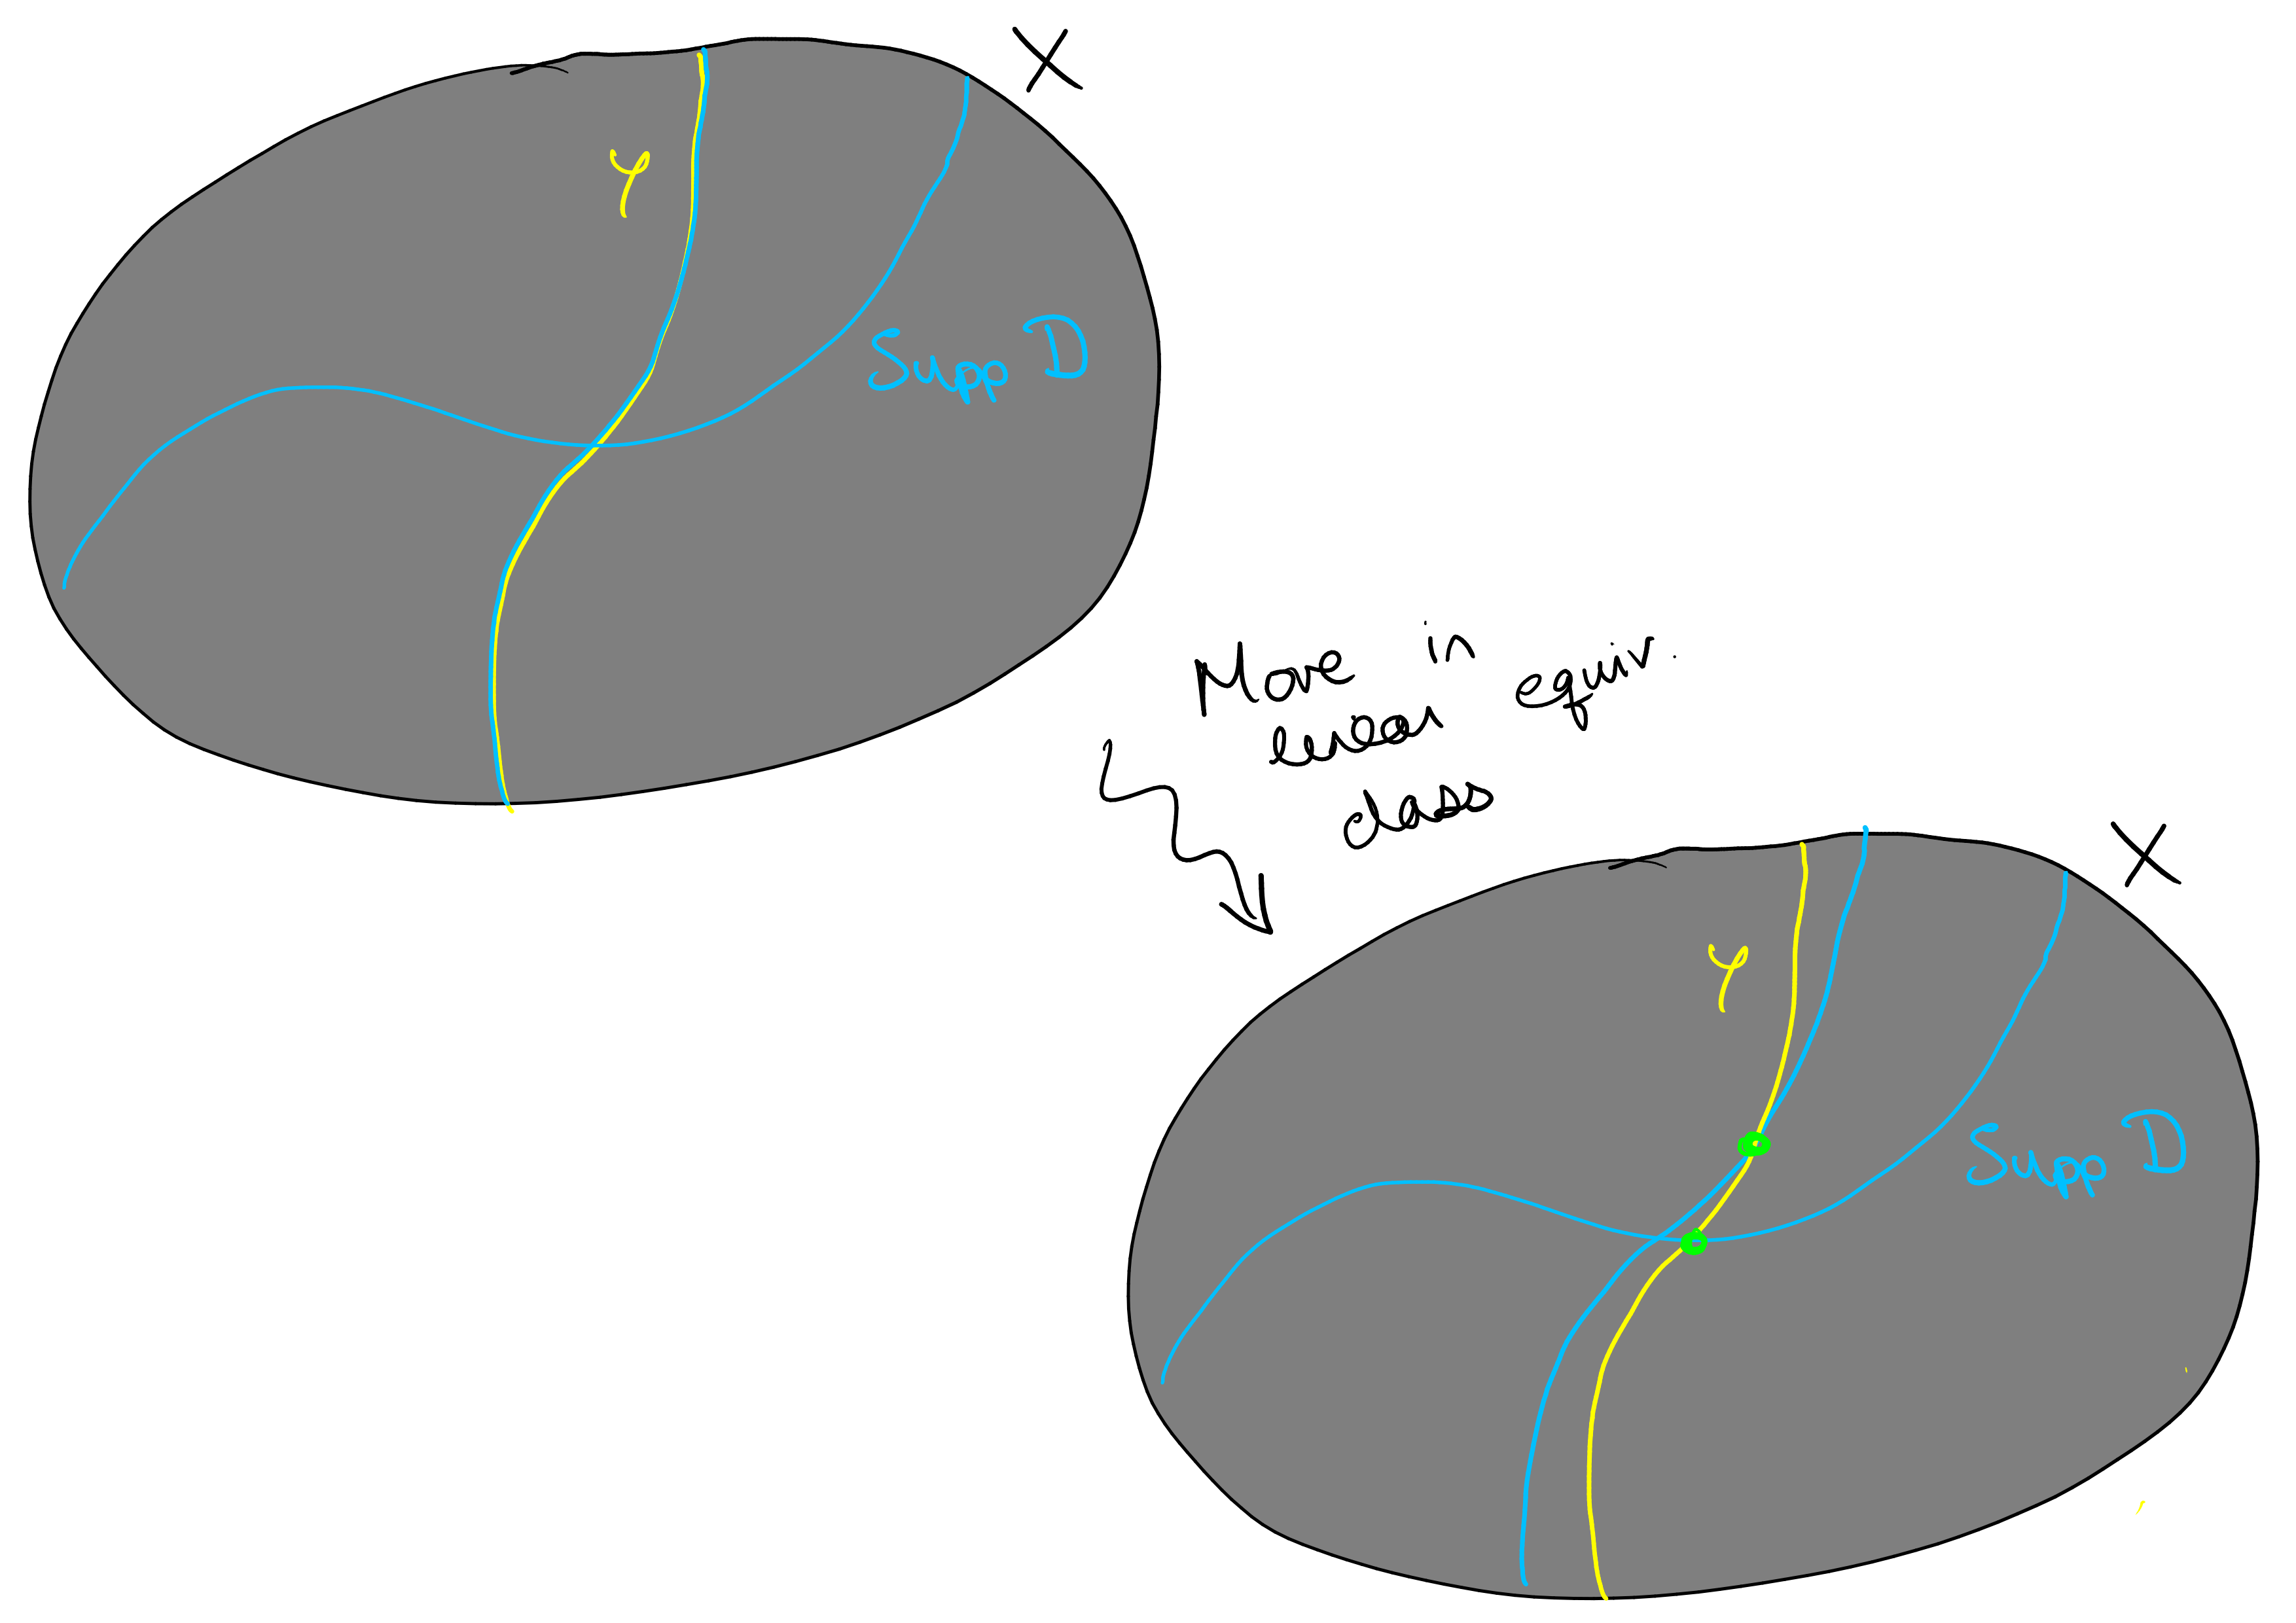 X
Y
Supp D
Move in
linear equiv.
class
X
Y
Supp D